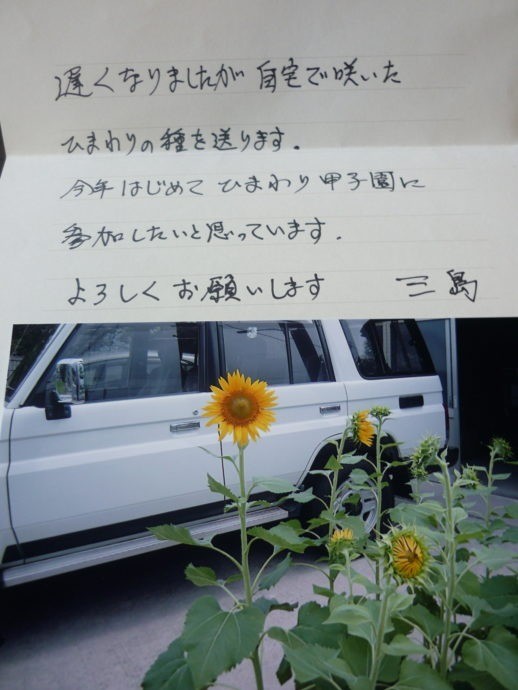 遅くなりましたが 自宅で咲いた
ひまわりの種を送ります.
今年はじめて ひまわり甲子園に
参加したいと思っています.
よろしくお願いします 三島